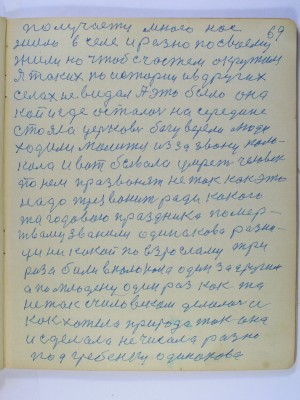 69
получаету много нас
жило в селе и разно по своему
жили но чтоб счастем окружон
я таких по истории и в других
селах не видал А это было она
кой где осталох на середине
стояла церковь богу верели люди
ходили молитця из за звону коло-
кола И вот бывало умрет человек
то нем празвонят не так как это
надо тут звонит ради какого
та годового праздника по мер-
твому званием одинакова разни-
ци ни какой по взрослому три
раза били в колокол один за другим
а по молодму один раз как та
не так с человеком делалох и
как хотела природа так она
и сделала не числа разно
под гребенку одинакова